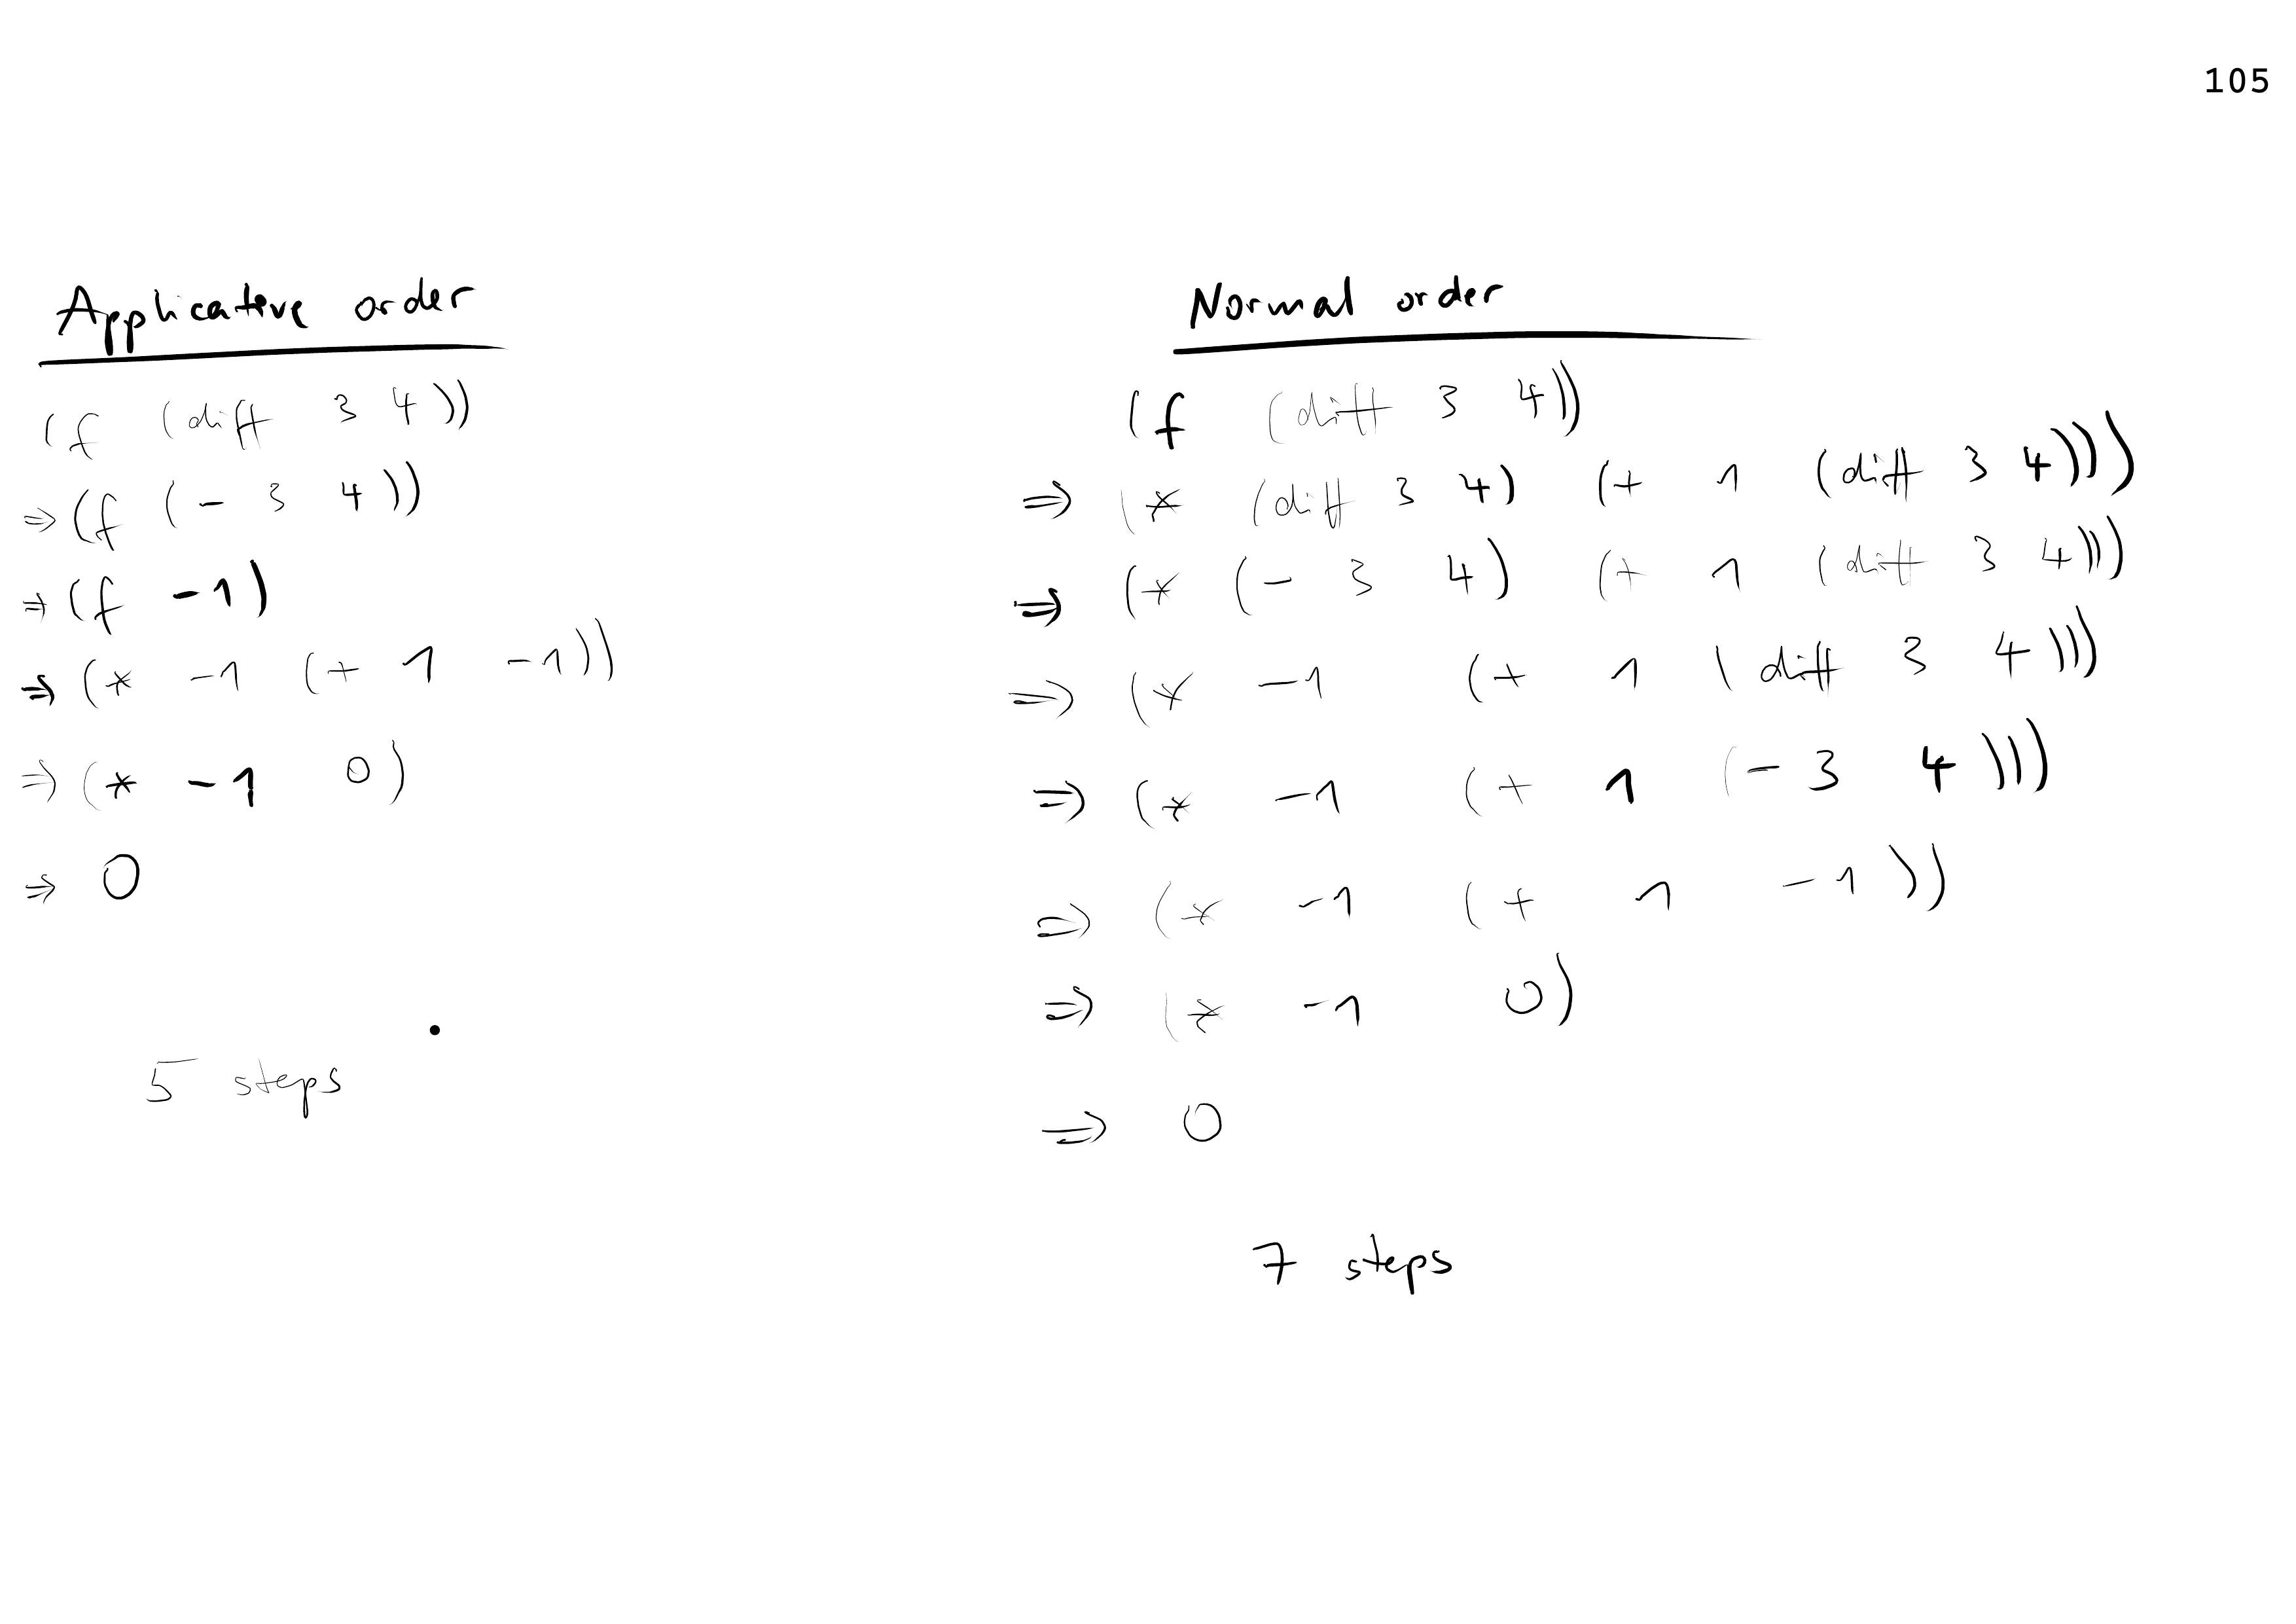 105
Applicative order
(f (diff 3 4))
⇒ (f (- 3 4))
⇒ (f -1)
⇒ (* -1 (+ 1 -1))
⇒ (* -1 0)
⇒ 0
5 steps
Normal order
(f (diff 3 4))
⇒ (* (diff 3 4) (+ 1 (diff 3 4))))
⇒ (* (- 3 4) (+ 1 (diff 3 4)))
⇒ (* -1 (+ 1 (diff 3 4)))
⇒ (* -1 (+ 1 (- 3 4)))
⇒ (* -1 (+ 1 -1))
⇒ (* -1 0)
⇒ 0
7 steps